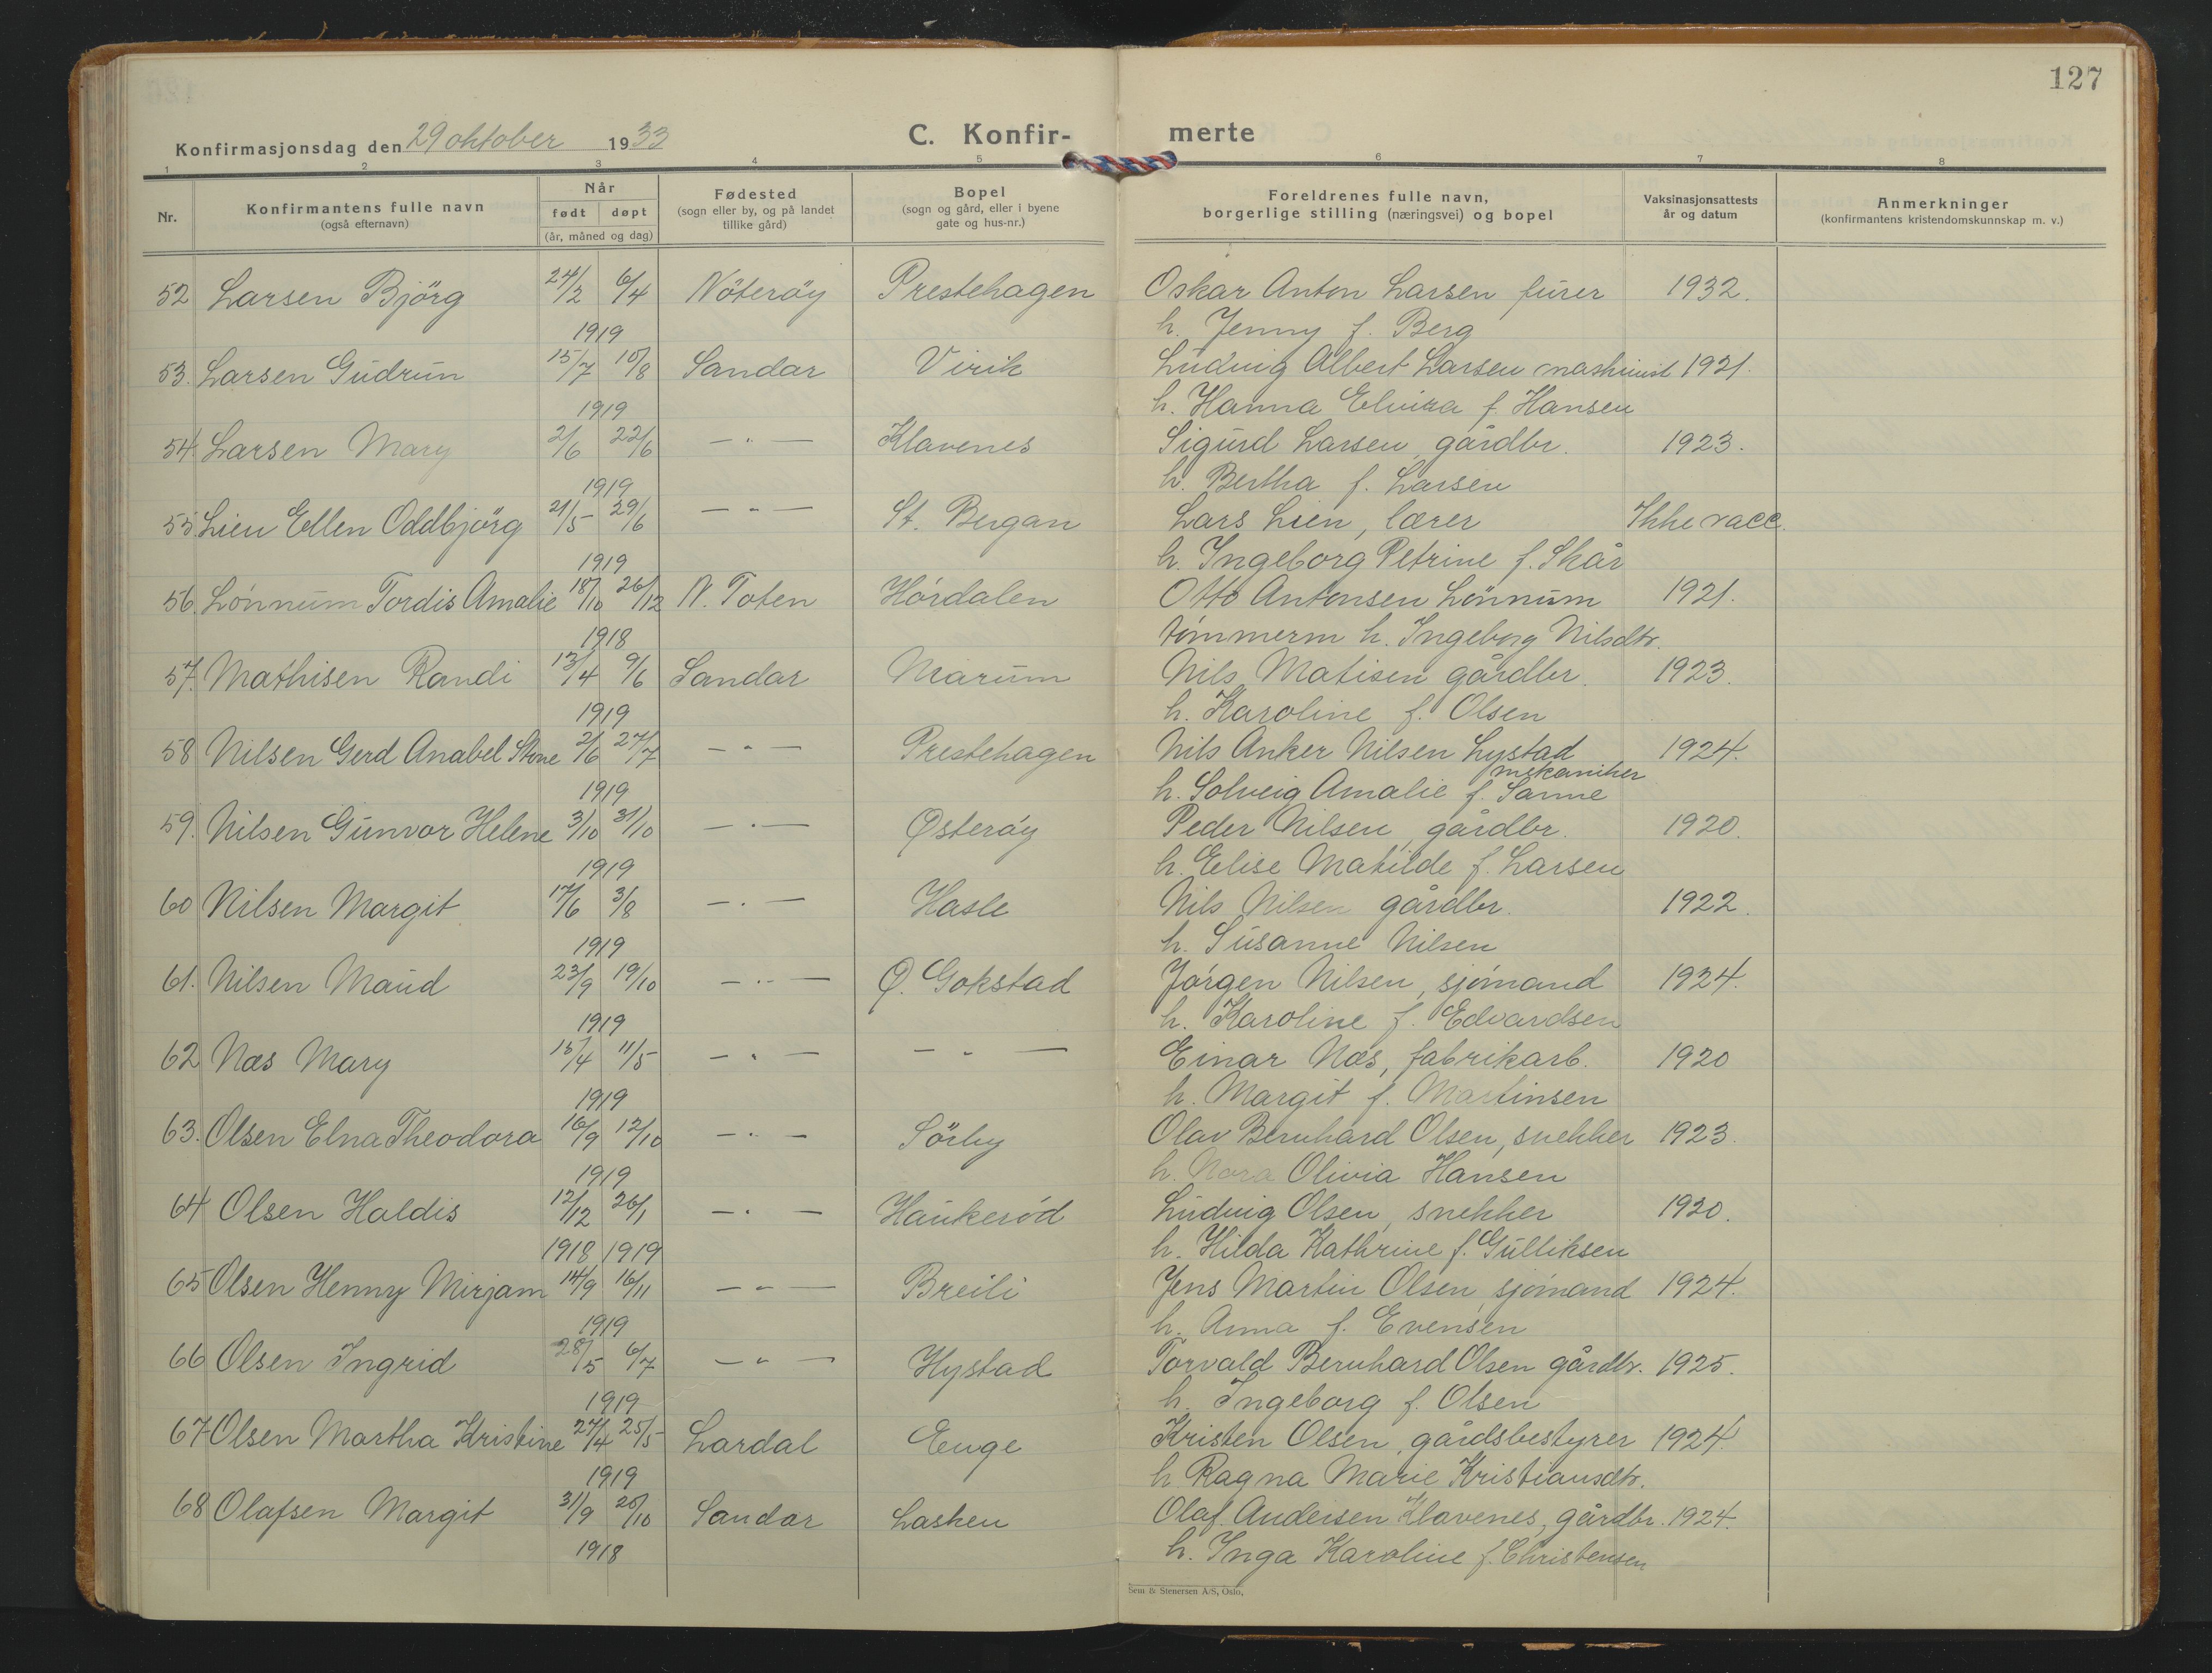 127
Konfirmasjonsdag den 29 oktober 1933
C. Konfir- merte
1 2 3 4 5 6 7 8
Nr.
Konfirmantens fulle navn
(også efternavn)
Når
født døpt
(år, måned og dag)
Fødested
(sogn eller by, og på landet
tillike gård)
Bopel
(sogn og gård, eller i byene
gate og hus-nr.)
Foreldrenes fulle navn,
borgerlige stilling (næringsvei) og bopel
Vaksinasjonsattests
år og datum
Anmerkninger
(konfirmantens kristendomskunnskap m. v.)
52 Larsen Bjørg 24/2 6/4 Nöteröy Prestehagen Oskar Anton Larsen fürer 1932.
1919 h. Jenny f. Berg
53. Larsen Gudrun 15/7 10/8 Sandar Virik Ludvig Albert Larsen maskinist 1921.
1919 h. Hanna Elvira f. Hansen
54. Larsen Mary 2/6 22/6 — " — Klavenes Sigurd Larsen, gårdbr. 1923.
1919 h. Bertha f. Larsen
55. Lien Ellen Oddbjörg 21/5 29/6 — " — St. Bergan Lars Lien, lærer Ikke vacc.
1919 h. Ingeborg Petrine f. Skår
56. Lönnum Tordis Amalie 18/10 26/12 N. Toten Hórdalen Otto Antonsen Lönnum 1921.
1918 tömmerm h. Ingeborg Nilsdtr.
57. Mathisen Randi 13/4 9/6 Sandar Marum Nils Matisen gårdbr. 1923.
1919 h. Karoline f. Olsen
58 Nilsen Gerd Anabel Stone 2/6 27/7 — " — Prestehagen Nils Anker Nilsen Lystad 1924.
mekaniker
1919 h. Solveig Amalie f. Sanne
59. Nilsen Gunvor Helene 3/10 31/10 — " — Østeröy Peder Nilsen, gårdbr. 1920.
1919 h. Elise Matilde f. Larsen
60 Nilsen Margit 17/6 3/8 — " — Hasle Nils Nilsen gårdbr. 1922.
1919 h. Susanne Nilsen
61. Nilsen Maud 23/9 19/10 — " — Ø. Gokstad Jørgen Nilsen, sjömand 1924.
1919 h. Karoline f. Edvardsen
62 Næs Mary 15/4 11/5 — " — — " — Einar Næs, fabrikarb. 1920
1919 h. Margit f. Martinsen
63. Olsen Elna Theodora 16/9 12/10 — " — Sörby Olav Bernhard Olsen, snekker 1923.
1919 h. Nora Olivia Hansen
64 Olsen Haldis 12/12 26/1 — " — Haukeröd Ludvig Olsen, snekker 1920.
1918 1919 h. Hilda Kathrine f. Gulliksen
65 Olsen Henny Mirjam 14/9 16/11 — " — Breili Jens Martin Olsen, sjömand 1924.
1919 h. Anna f. Evensen
66 Olsen Ingrid 28/5 6/7 — " — Hystad Torvald Bernhard Olsen gårdbr. 1925.
1919 h. Ingeborg f. Olsen
67 Olsen Martha Kristine 27/4 25/5 Lardal Enge Kristen Olsen, gårdsbestyrer 1924.
1919 h. Ragna Marie Kristiansdtr.
68 Olafsen Margit 31/9 20/10 Sandar Lasken Olaf Andersen Klavenes, gårdbr. 1924.
1918 h. Inga Karoline f. Christensen
Sem & Stenersen A/S, Oslo.